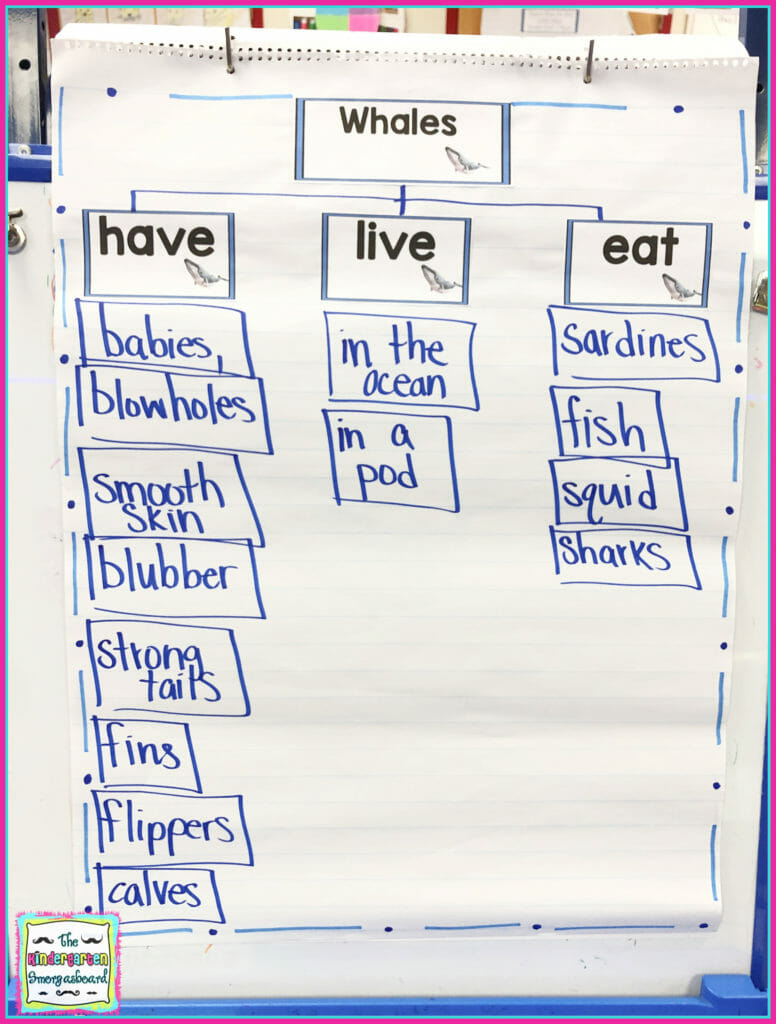 Whales
have
live
eat
babies,
blowholes
smooth
skin
blubber
strong
tails
fins
flippers
calves
in the
ocean
in a
pod
sardines
fish
squid
sharks
The
Kindergarten
Smorgasboard